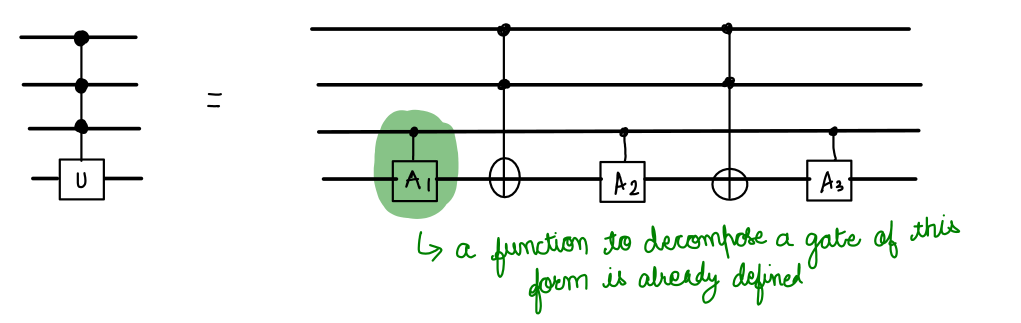 U
=
A1
A2
A3
↳ a function to decompose a gate of this
form is already defined